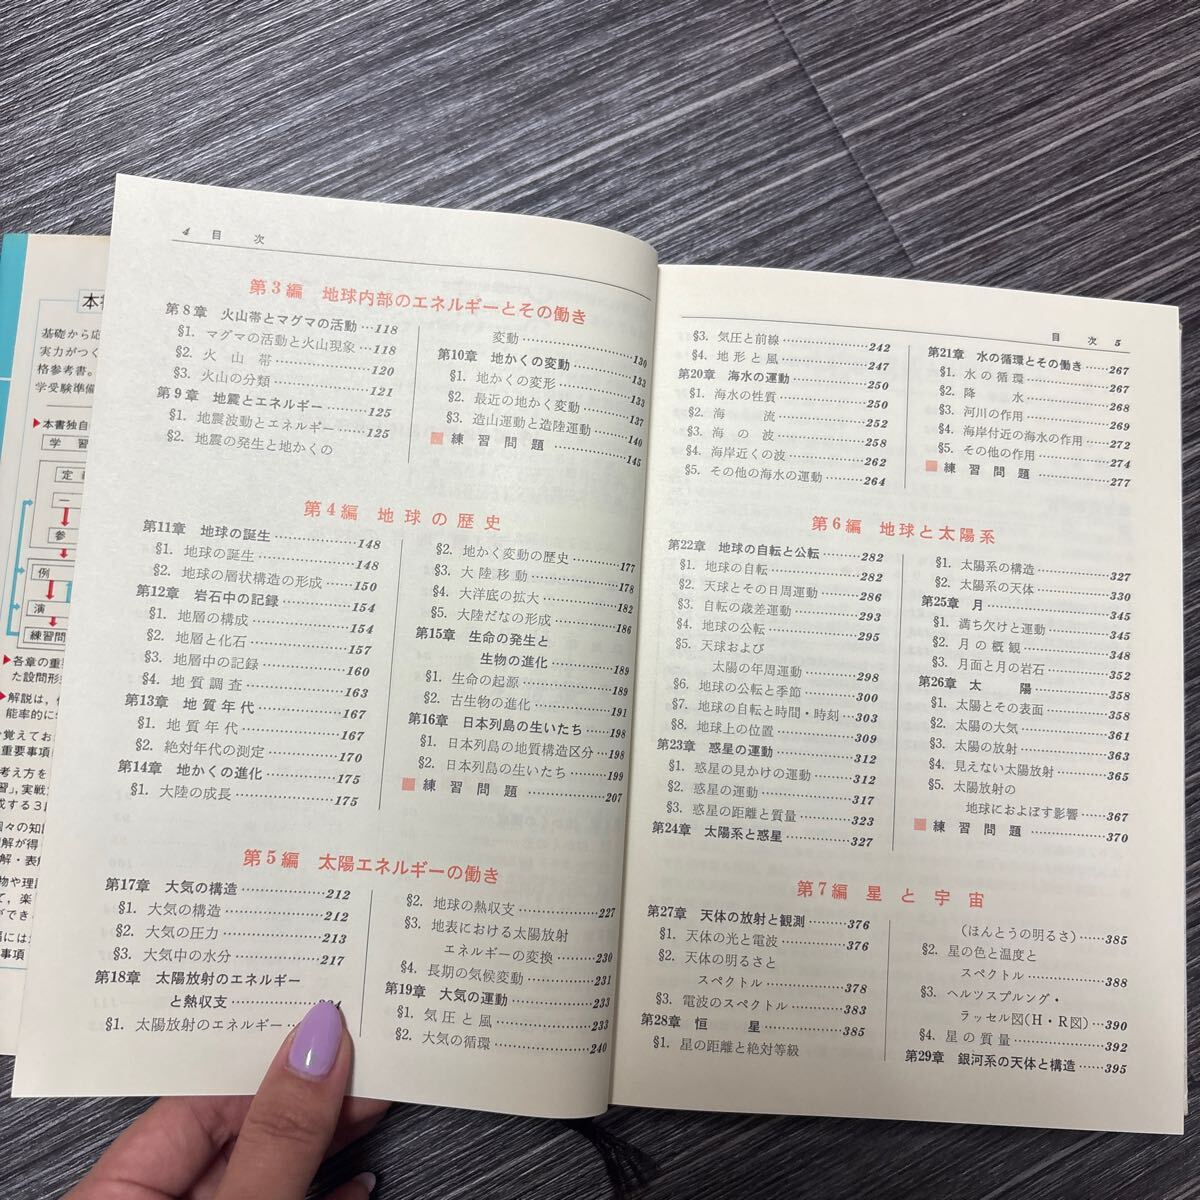 4 目 次
第3編 地球内部のエネルギーとその働き
第8章 火山帯とマグマの活動…118
§1. マグマの活動と火山現象…118
§2. 火山帯……120
§3. 火山の分類……121
第9章 地震とエネルギー……125
§1. 地震波動とエネルギー……125
§2. 地震の発生と地かくの
変動……130
第10章 地かくの変動……133
§1. 地かくの変形……133
§2. 最近の地かく変動……137
§3. 造山運動と造陸運動……140
練習問題……145
第4編 地球の歴史
第11章 地球の誕生……148
§1. 地球の誕生……148
§2. 地球の層状構造の形成……150
第12章 岩石中の記録……154
§1. 地層の構成……154
§2. 地層と化石……157
§3. 地層中の記録……160
§4. 地質調査……163
第13章 地質年代……167
§1. 地質年代……167
§2. 絶対年代の測定……170
第14章 地かくの進化……175
§1. 大陸の成長……175
§2. 地かく変動の歴史……177
§3. 大陸移動……178
§4. 大洋底の拡大……182
§5. 大陸だなの形成……186
第15章 生命の発生と
生物の進化……189
§1. 生命の起源……189
§2. 古生物の進化……191
第16章 日本列島の生いたち……198
§1. 日本列島の地質構造区分…198
§2. 日本列島の生いたち……199
練習問題……207
第5編 太陽エネルギーの働き
第17章 大気の構造……212
§1. 大気の構造……212
§2. 大気の圧力……213
§3. 大気中の水分……217
第18章 太陽放射のエネルギー
と熱収支……
§1. 太陽放射のエネルギー…
§2. 地球の熱収支……227
§3. 地表における太陽放射
エネルギーの変換……230
§4. 長期の気候変動……231
第19章 大気の運動……233
§1. 気圧と風……233
§2. 大気の循環……240
目 次 5
§3. 気圧と前線……242
§4. 地形と風……247
第20章 海水の運動……250
§1. 海水の性質……250
§2. 海流……252
§3. 海の波……258
§4. 海岸近くの波……262
§5. その他の海水の運動……264
第21章 水の循環とその働き……267
§1. 水の循環……267
§2. 降水……268
§3. 河川の作用……269
§4. 海岸付近の海水の作用……272
§5. その他の作用……274
練習問題……277
第6編 地球と太陽系
第22章 地球の自転と公転……282
§1. 地球の自転……282
§2. 天球とその日周運動……286
§3. 自転の歳差運動……293
§4. 地球の公転……295
§5. 天球および
太陽の年周運動……298
§6. 地球の公転と季節……300
§7. 地球の自転と時間・時刻…303
§8. 地球上の位置……309
第23章 惑星の運動……312
§1. 惑星の見かけの運動……312
§2. 惑星の運動……317
§3. 惑星の距離と質量……323
第24章 太陽系と惑星……327
§1. 太陽系の構造……327
§2. 太陽系の天体……330
第25章 月……345
§1. 満ち欠けと運動……345
§2. 月の概観……348
§3. 月面と月の岩石……352
第26章 太陽……358
§1. 太陽とその表面……358
§2. 太陽の大気……361
§3. 太陽の放射……363
§4. 見えない太陽放射……365
§5. 太陽放射の
地球におよぼす影響……367
練習問題……370
第7編 星と宇宙
第27章 天体の放射と観測……376
§1. 天体の光と電波……376
§2. 天体の明るさと
スペクトル……378
§3. 電波のスペクトル……383
第28章 恒星……385
§1. 星の距離と絶対等級
(ほんとうの明るさ)……385
§2. 星の色と温度と
スペクトル……388
§3. ヘルツスプルング・
ラッセル図(H・R図)…390
§4. 星の質量……392
第29章 銀河系の天体と構造……395
基礎から応
実力がつく
格参考書。
学受験準備
▶本書独自
学習
一
参
例
演
練習問
▶各章の重
た設問形
▶解説は、
能率的に